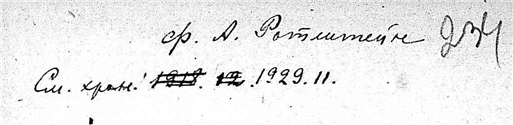 ф. А. Ротштейн 234
См. хран. 1918. 12. 1929. 11.